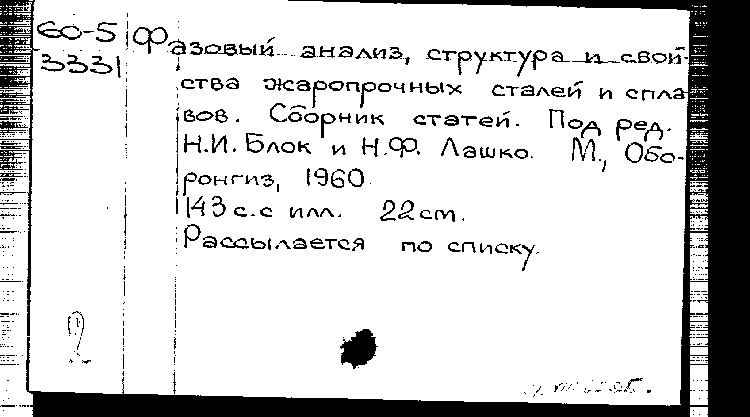 60-5 Фазовый анализ, структура и свой-
3331
ства жаропрочных сталей и спла
вов. Сборник статей. Под ред.
Н.И. Блок и Н.Ф. Лашко. М., Обо-
ронгиз, 1960
143 с. с илл. 22 cm.
Рассылается по списку.
2